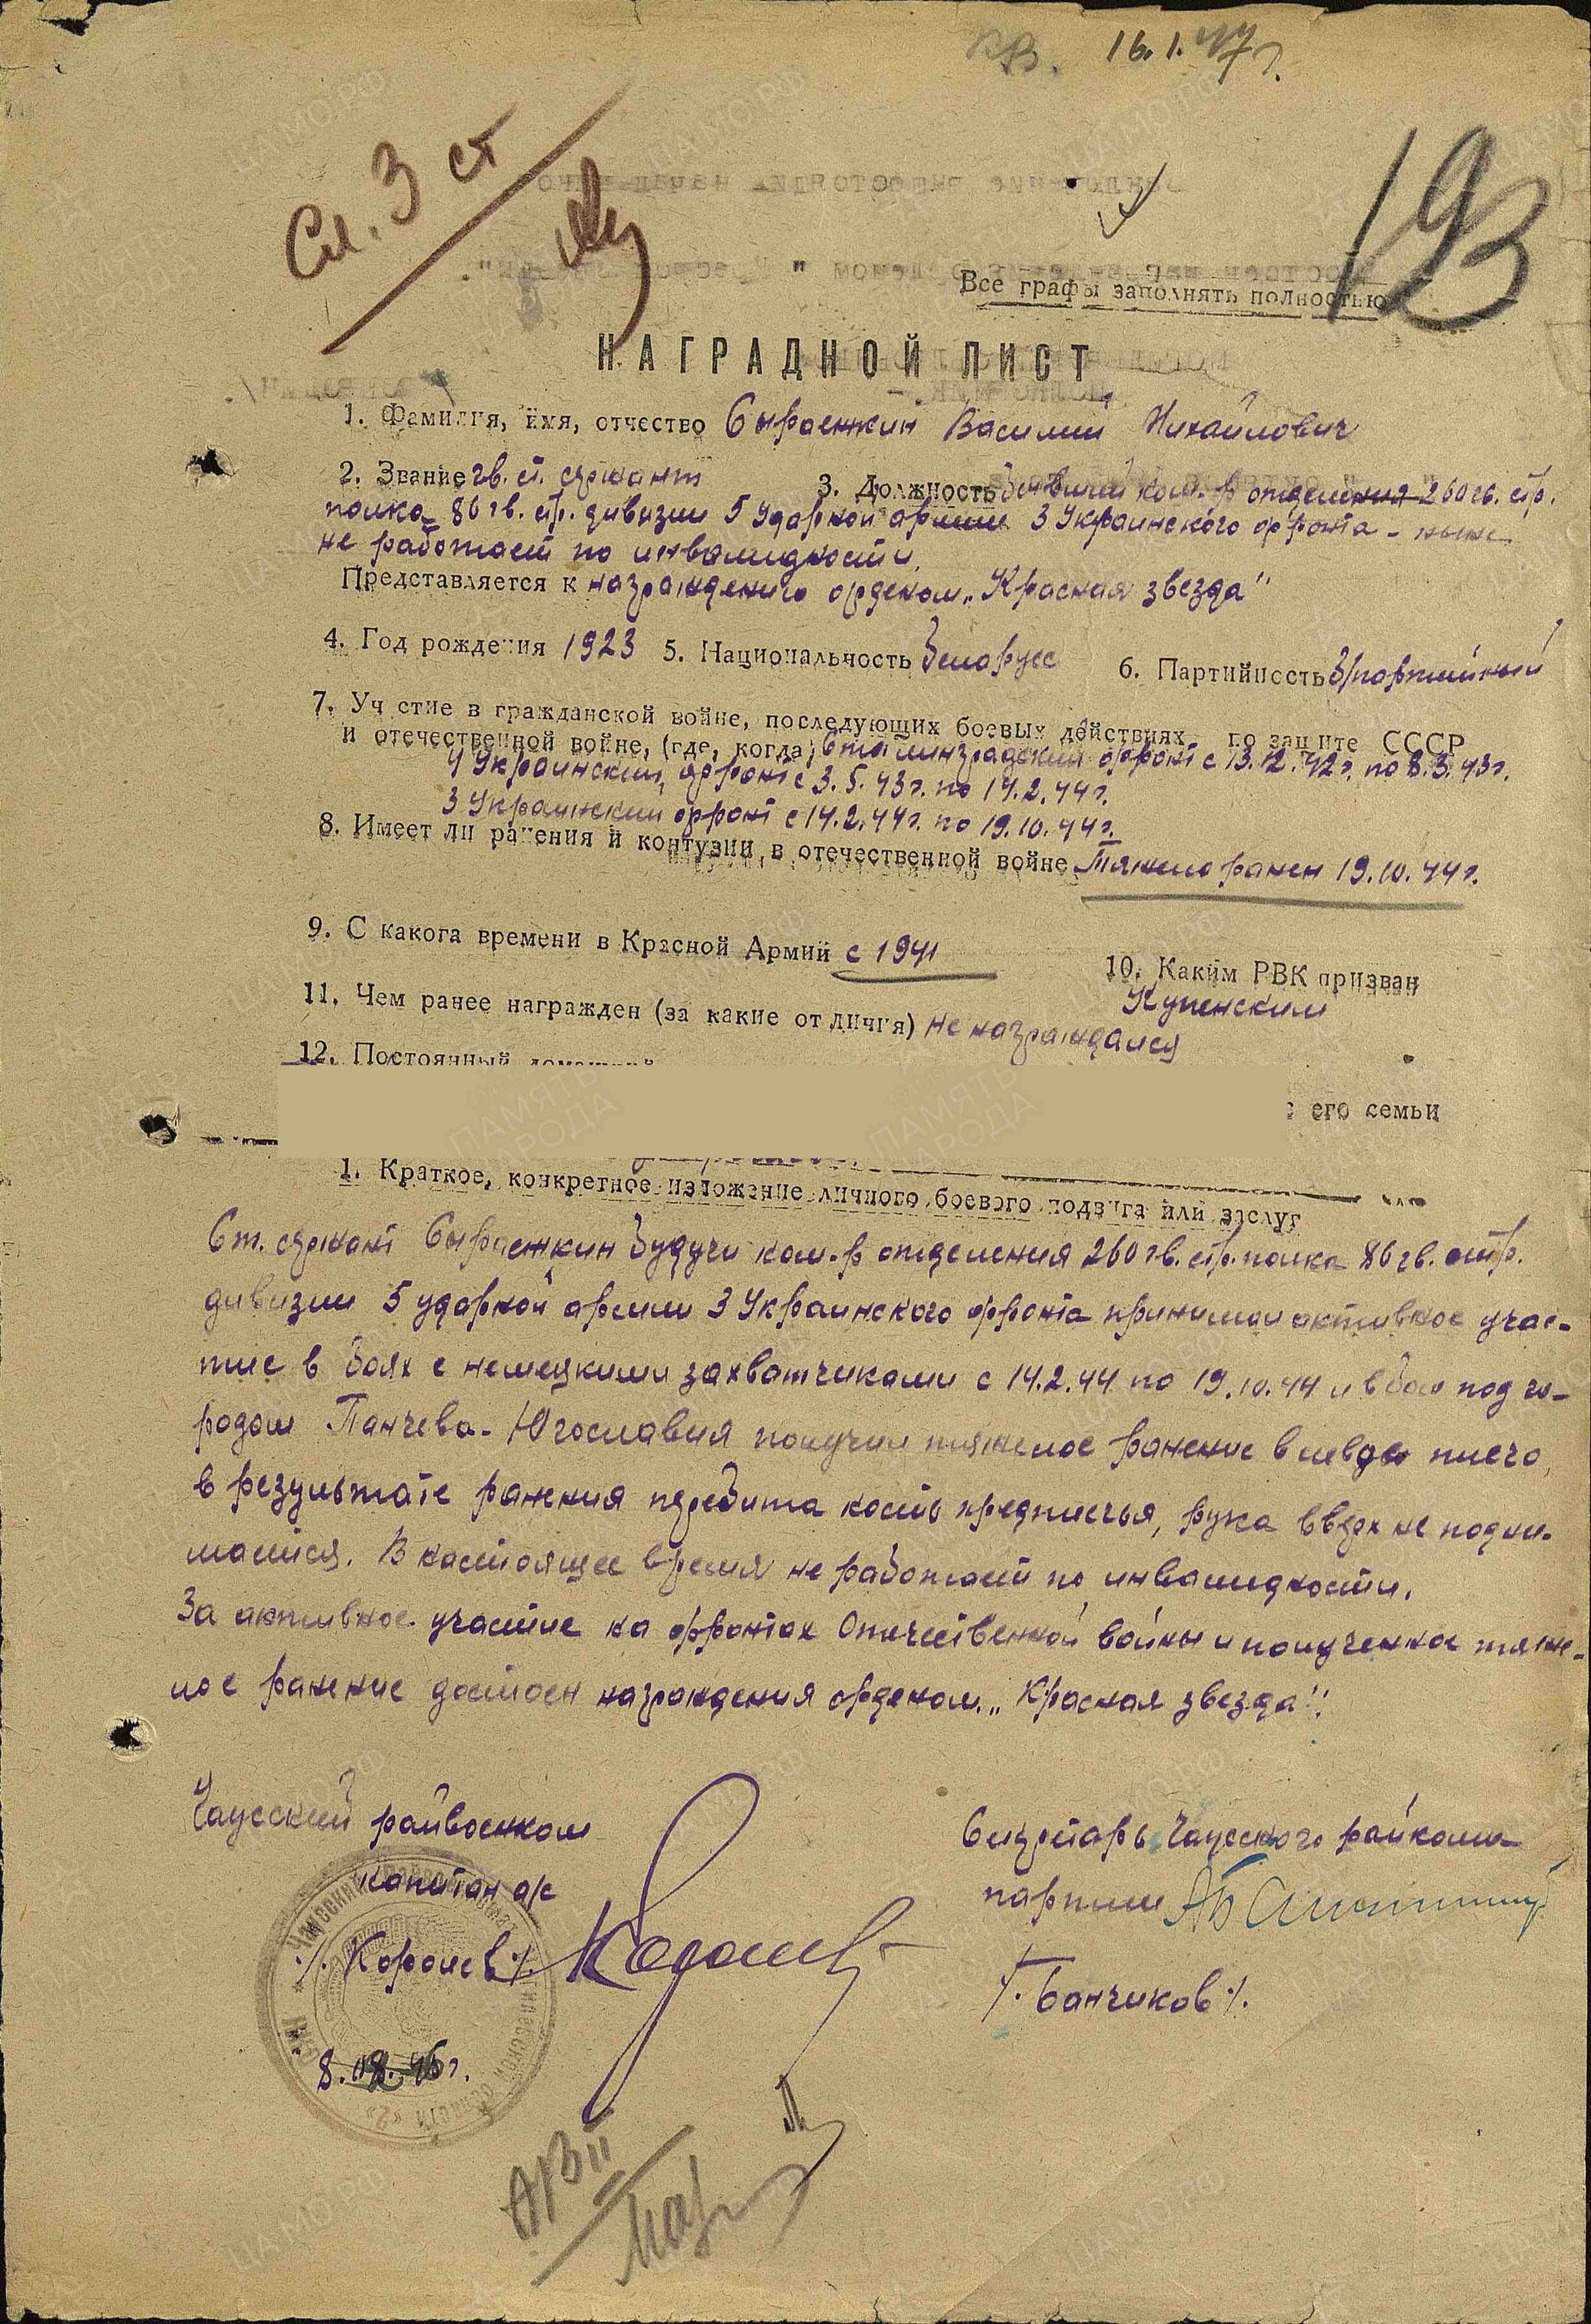 КВ. 16.1.47 г.
Сл. 3 ст
193
Все графы заполнять полностью
НАГРАДНОЙ ЛИСТ
1. Фамилия, имя, отчество Сыраежкин Василий Михайлович
2. Звание гв. ст. сержант 3. Должность бывший ком-р отделения 260 гв. стр.
полка 86 гв. стр. дивизии 5 ударной армии 3 Украинского фронта - ныне
не работает по инвалидности.
Представляется к награждению орденом „Красная звезда"
4. Год рождения 1923 5. Национальность Белорусс 6. Партийность Б/партийный
7. Участие в гражданской войне, последующих боевых действиях по защите СССР
и отечественной войне, (где, когда) Сталинградский фронт с 13.12.42 г. по 8.3.43 г.
4 Украинский фронт с 3.5.43 г. по 14.2.44 г.
3 Украинский фронт с 14.2.44 г. по 19.10.44 г.
8. Имеет ли ранения и контузии в отечественной войне Тяжело ранен 19.10.44 г.
9. С какога времени в Красной Армий с 1941 10. Каким РВК призван
11. Чем ранее награжден (за какие отличия) не награждался
12. Постоянный его семьи
1. Краткое, конкретное изложение личного боевого подвига или заслуг
Ст. сержант Сыраежкин будучи ком-р отделения 260 гв. стр. полка 86 гв. стр.
дивизии 5 ударной армии 3 Украинского фронта принимал активное учас-
тие в боях с немецкими захватчиками с 14.2.44 по 19.10.44 и в бою под го-
родом Панчева - Югославия получил тяжелое ранение в левое плечо,
в результате ранения перебита кость предплечья, рука вверх не подни-
мается. В настоящее время не работает по инвалидности.
За активное участие на фронтах Отечественной войны и полученное тяже-
лое ранение достоен награждения орденом „Красная звезда".
Чаусский райвоенком Секретарь Чаусского райкома
капитан а/с партии
/. Королев ./ /. Банчиков ./
8. 46 г.